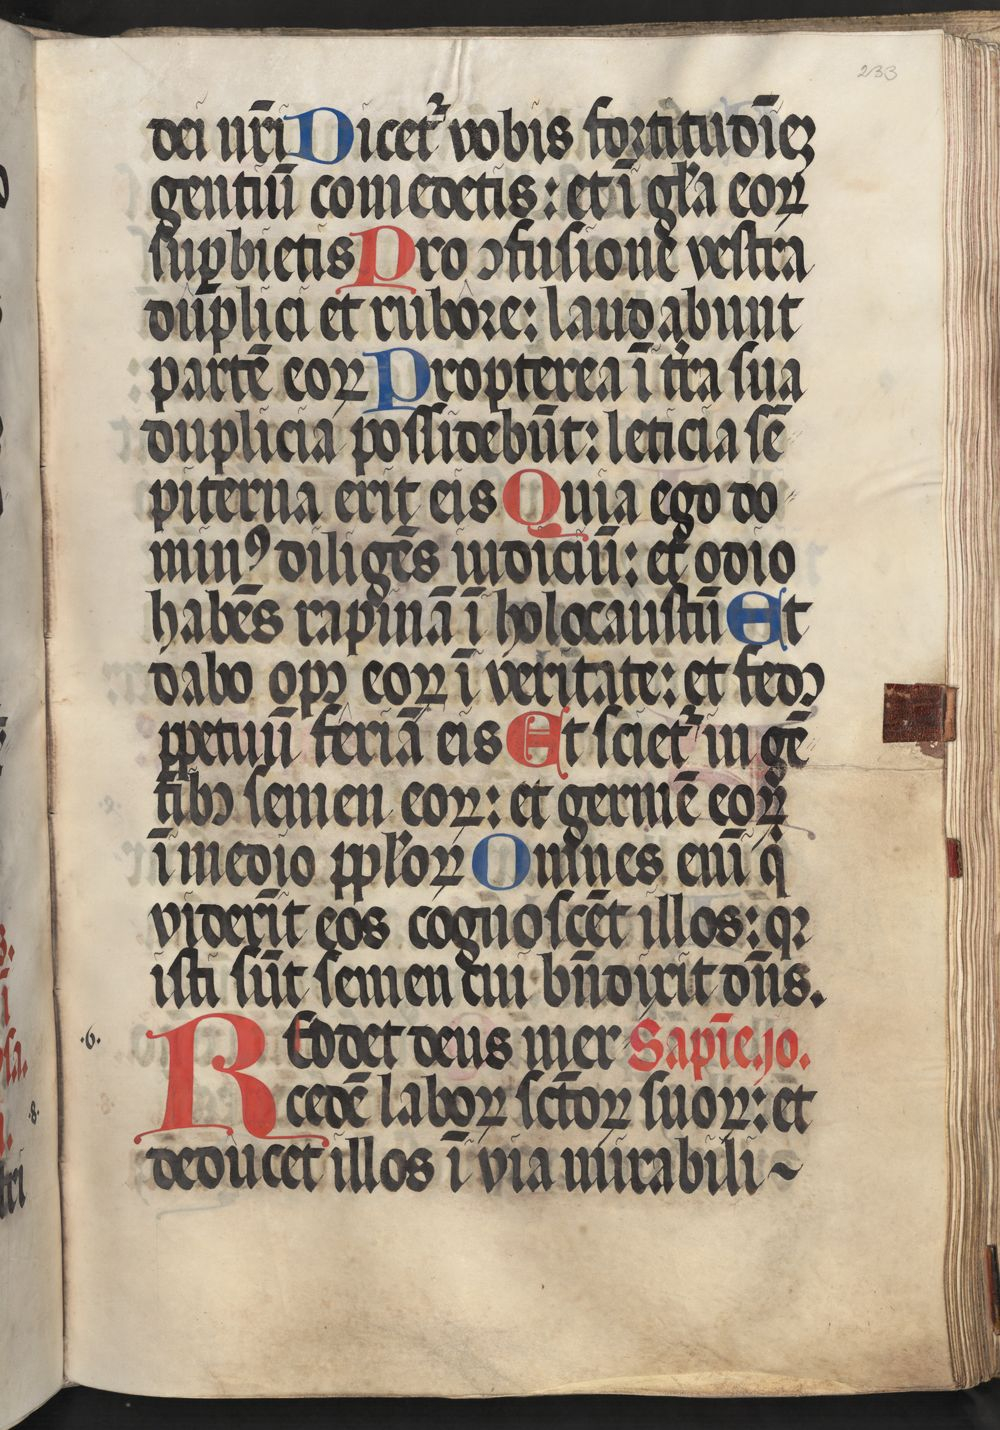 233
dei ur̄i Dicet᷑ vobis fortitudīeʒ
gentiū comedetis: et ī gl'a eoꝝ
suꝑbietis Pro ꝯfusione vestra
duplici et rubore: laudabunt
partē eoꝝ Propterea ī tr̄a sua
duplicia possidebūt: leticia sē
piterna erit eis Quia ego do
minꝰ diligēs iudiciū: et odio
habēs rapinā ī holocaustū Et
dabo opꝰ eoꝝ ī veritate: et fedꝰ
ꝑpetuū feriā eis Et sciet᷑ in gē
tibꝰ semen eoꝝ: et germē eoꝝ
ī medio ppl'oꝝ Omnes enī q̇
viderīt eos cognoscēt illos: qꝛ
isti sūt semen cui bn̄dixit dn̄s.
·6. REddet deus mer Sapiē.10.
cedē laboꝝ sctōꝝ suoꝝ: et
deducet illos ī via mirabili~
·8·